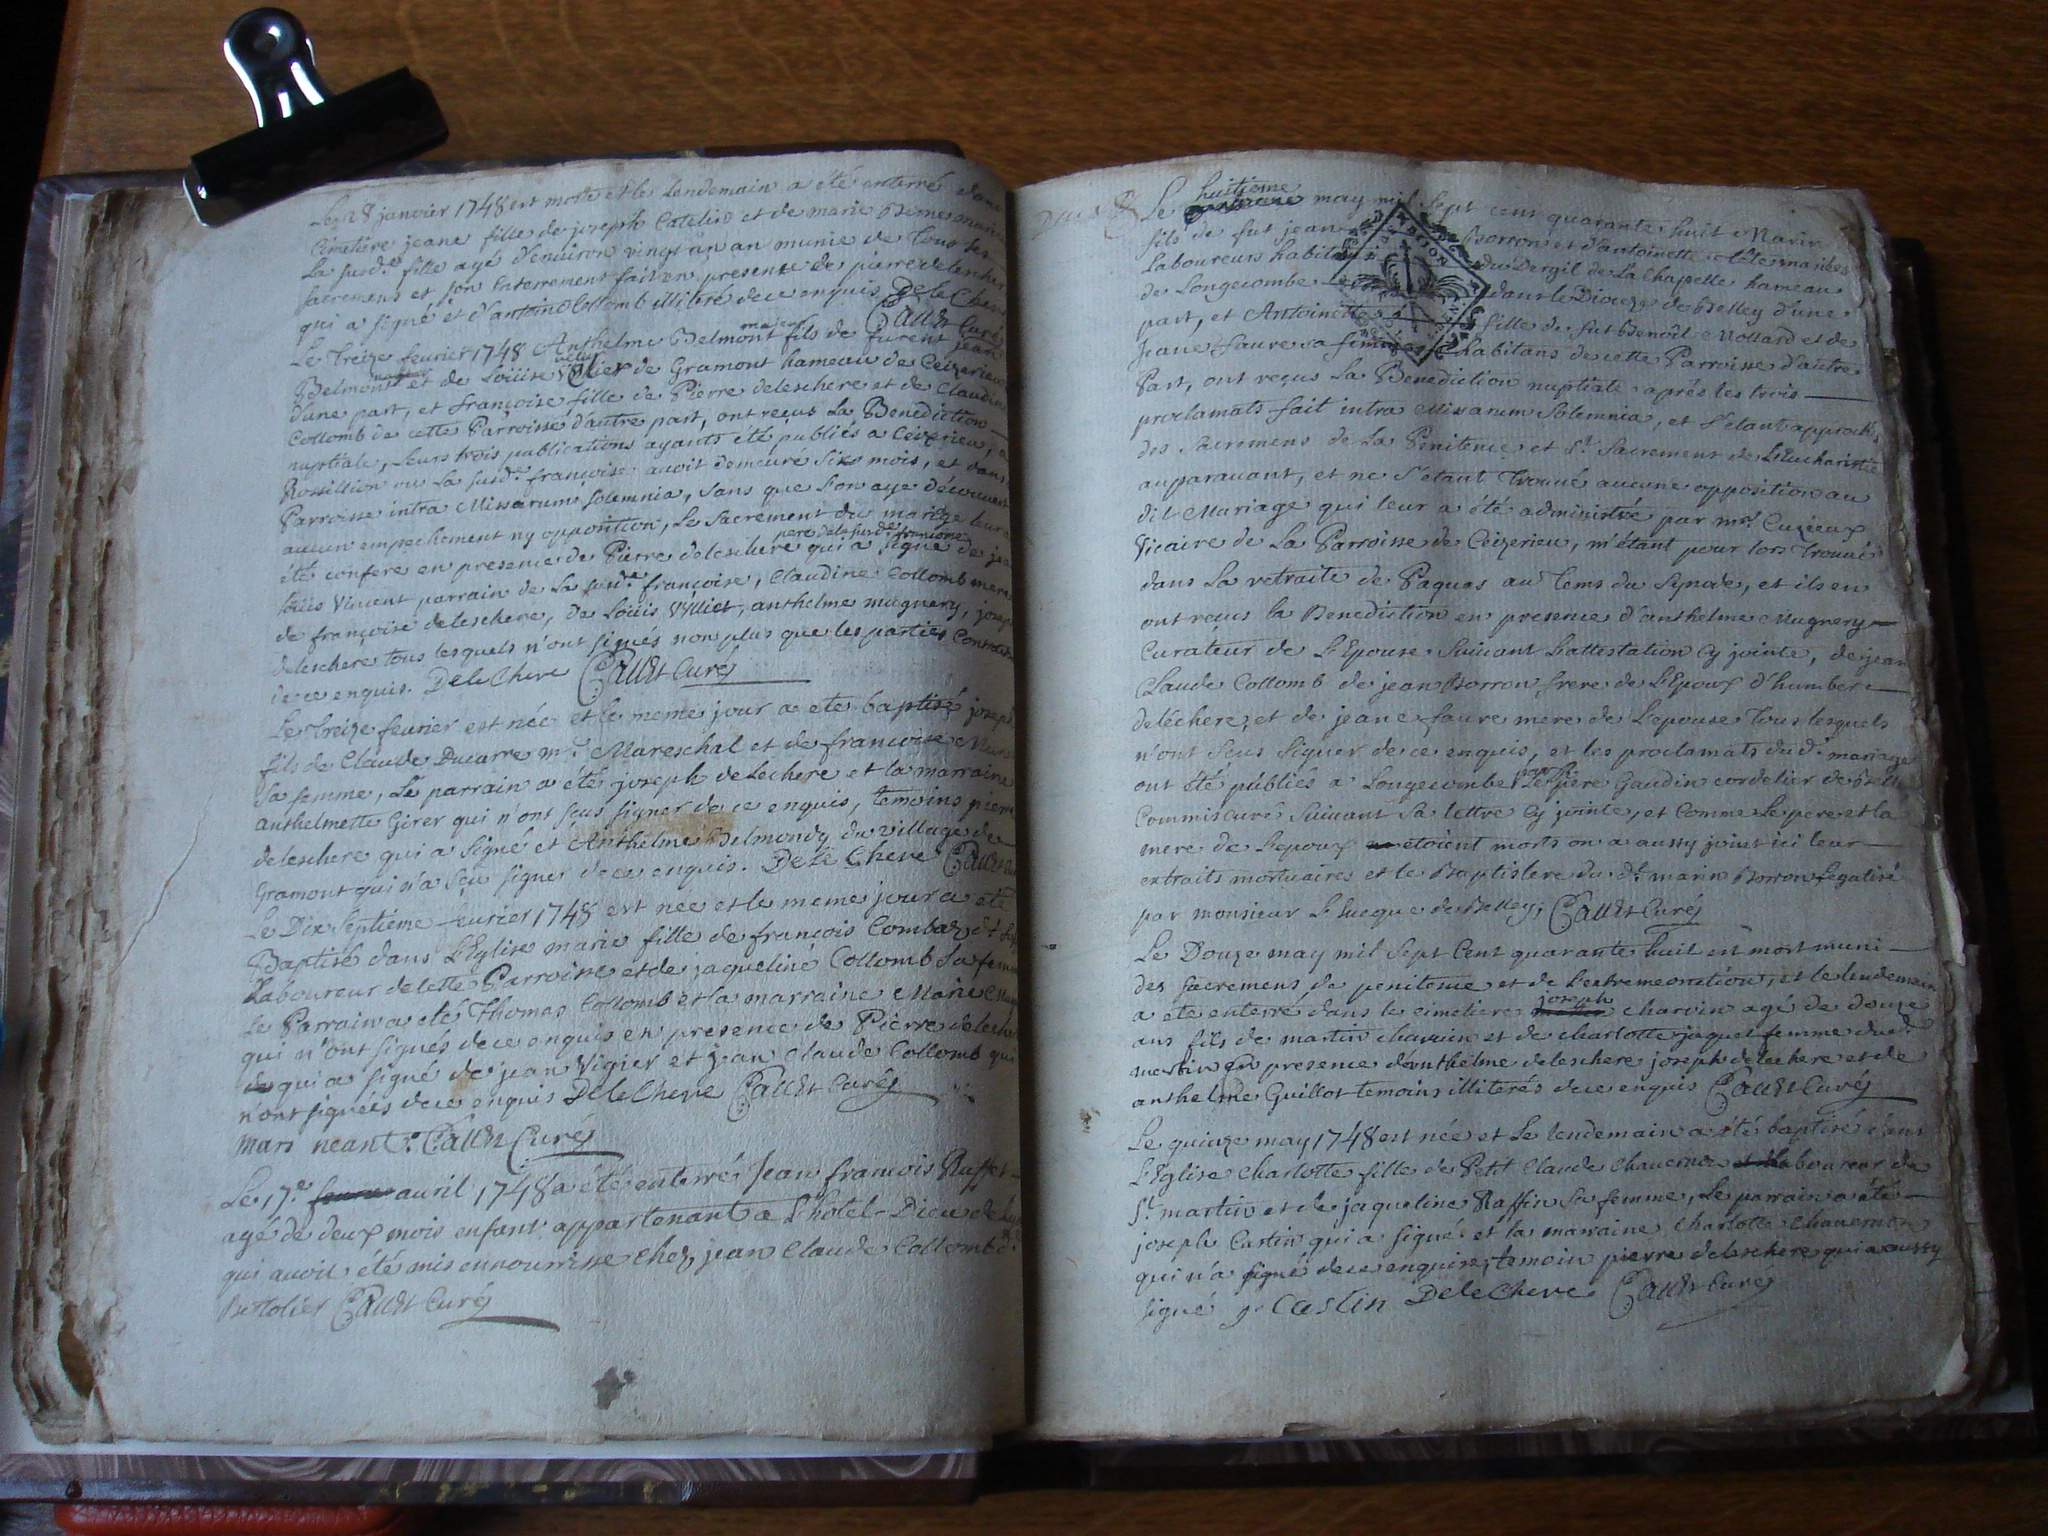 Le 28 janvier 1748 est morte et le lendemain a été enterré dans
Cimetiere jeane fille de joseph Catelin et de marie
La susde. fille agé d'environ vingt un an munie de tous ses
sacremens et son enterrement fait en presence de pierre delescher
qui a signé et d'antoine Collomb illitéré de ce enquis DeleChere
Callet Curé
Le treize fevrier 1748 Anthelme Belmont majeur fils de furent jean
Belmont et de Loüise de Gramont hameau de Ceizerieu
d'une part, et françoise fille de Pierre deleschere et de Claudine
Collomb de cette Parroisse d'autre part, ont reçus La Benediction
nuptiale, leurs trois publications ayants été publiés a Ceizerieu, a
Rossillion ou La susde. françoise avoit demeuré six mois, et dans
Parroisse intra Missarum solemnia, sans que l'on aye découvert
aucun empechement ny opposition, Le Sacrement du mariage leur a
été conferé en presence de Pierre deleschere pere de la susde. francoise qui a signé de
loüis Vincent parrain de La susde. françoise, Claudine Collomb mere
de françoise deleschere, de Loüis Vylliet, anthelme mugnery, joseph
deleschere tous lesquels n'ont signés non plus que les parties
de ce enquis. DeleChere Callet Curé
Le treize fevrier est née et le meme jour a ete baptisé joseph
fils de Claude Ducarre me. Mareschal et de francoise
sa femme, Le parrain a été joseph delechere et la marraine
anthelmette Girer qui n'ont sçus signer de ce enquis, temoins pierre
deleschere qui a signé et Anthelme Belmondy du village de
Gramont qui n'a sçu signer de ce enquis. DeleChere Callet
Le Dix septiéme fevrier 1748 est née et le meme jour a eté
Baptisé dans L'Eglise marie fille de françois Combaz dt
Laboureur de cette Parroisse et de jaqueline Collomb sa femme
Le Parrain a eté Thomas Collomb et la marraine Marie
qui n'ont signés de ce enquis en presence de Pierre delescher
qui a signé de jean Vigier et jean Claude Collomb qui
n'ont signées de ce enquis DeleChere Callet Curé
Mars neant. Callet Curé
Le 17e. avril 1748 a été enterré Jean françois Ruffet
agé de deux mois enfant appartenant a L'hotel-Dieu de
qui avoit été mis en nourrisse chez jean Claude Collomb dt.
Bertolier Callet Curé
Le huitieme may mil sept cent quarante huit Marin
fils de fut jean Borron et d'antoinette
Laboureurs habitans du Dergil de La Chapelle hameau
de Longecombe dans le Dioceze de Belley d'une
part, et Antoinette fille de fut Benoît Mollard et de
Jeane Favre sa femme habitans de cette Parroisse d'autre
Part, ont reçus La Benediction nuptiale aprés les trois
proclamats fait intra Missarum Solemnia, et s'etant approchés
des Sacremens de La Penitence et St. Sacrement de L'Eucharistie
auparavant, et ne s'etant trouvé aucune opposition au
dit Mariage qui leur a été administré par mr. Cuzieux
Vicaire de La Parroisse de Ceizerieu, m'étant pour lors trouvé
dans La retraite de Paques au tems du Synode, et ils en
ont reçus la Benediction en presence d'anthelme Mugnery
Curateur de L'Epouse suivant L'attestation cy jointe, de jean
Claude Collomb de jean Borron frere de L'Epoux d'humber
deléchere, et de jeane favre mere de L'epouse tous lesquels
n'ont sçus signer de ce enquis, et les proclamats du dt. mariage
ont été publiés a Longecombe par le pere Gaudin cordelier de Belley
Commis curé suivant sa lettre cy jointe, et comme le pere et la
mere de L'epoux etoient morts on a aussy joint ici leur
extraits mortuaires et le Baptistere du dt. marin Borron Legalisé
par monsieur L'Eveque de Belley, Callet Curé
Le Douze may mil sept cent quarante huit est mort muni
des sacremens de penitence et de L'extremeonction, et le lendemain
a eté enterré dans le cimetiere joseph charvin agé de douze
ans fils de martin charvin et de charlotte jaquet femme dudt.
martin en presence d'anthelme deleschere joseph delechere et de
anthelme Guillot temoins illiterés de ce enquis Callet Curé
Le quinze may 1748 est née et Le lendemain a été baptisé dans
L'Eglise Charlotte fille de Petit Claude Chavernon laboureur de
St. martin et de jaqueline Raffin sa femme, Le parrain a été
joseph Castin qui a signé et la marraine Charlotte Chavernon
qui n'a signé de ce enquise, temoin pierre deleschere qui a aussy
signé j. Castin DeleChere Callet Curé